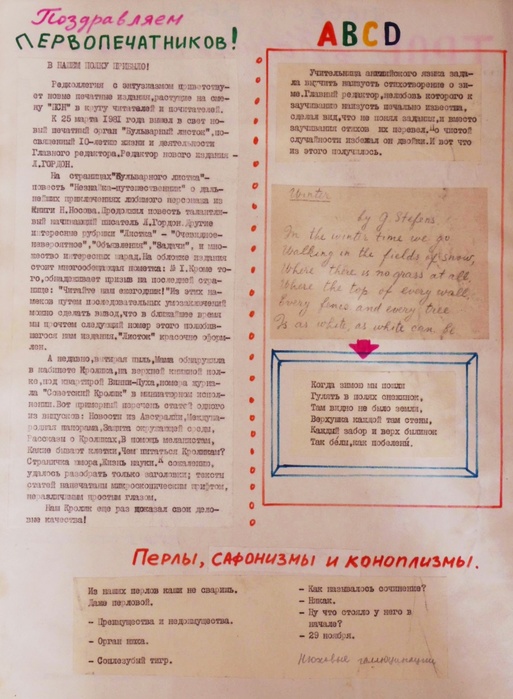 Поздравляем
ПЕРВОПЕЧАТНИКОВ!
В НАШЕМ ПОЛКУ ПРИБЫЛО!
Редколлегия с энтузиазмом приветству-
ет новые печатные издания, растущие на сме-
ну "ПОН" в кругу читателей и почитателей.
К 25 марта 1981 года вышел в свет но-
вый печатный орган "Бульварный листок", по-
священный 10-летию жизни и деятельности
Главного редактора. Редактор нового издания -
Л.ГОРДОН.
На страницах "Бульварного листка" -
повесть "Незнайка-путешественник" о даль-
нейших приключениях любимого персонажа из
книги Н.Носова. Продолжил повесть талантли-
вый начинающий писатель Л.Гордон. Другие
интересные рубрики "Листка" - "Очевидное-
невероятное", "Объявления", "Задачи", и мно-
жество интересных шарад. На обложке издания
стоит многообещающая пометка: № 1. Кроме то-
го, обнадеживает призыв на последней стра-
нице: "Читайте наш ежегодник!" Из этих на-
меков путем последовательных умозаключений
можно сделать вывод, что в ближайшее время
мы прочтем следующий номер этого полюбив-
шегося нам издания. "Листок" красочно оформ-
лен.
А недавно, вытирая пыль, Мама обнаружила
в кабинете Кролика, на верхней книжной пол-
ке, под квартирой Винни-Пуха, номера журна-
ла "Советский Кролик" в миниатюрном испол-
нении. Вот примерный перечень статей одного
из выпусков: Новости из Австралии, Междуна-
родная панорама, Защита окружающей среды,
Рассказы о Кроликах, В помощь меланистам,
Какие бывают клетки, Чем питаться Кроликам?
Страничка юмора, Жизнь науки. К сожалению,
удалось разобрать только заголовки; тексты
статей напечатаны микроскопическим шрифтом,
неразличимым простым глазом.
Наш Кролик еще раз доказал свои дело-
вые качества!
ABCD
Учительница английского языка зада-
ла выучить наизусть стихотворение о зи-
ме. Главный редактор, нелюбовь которого к
заучиванию наизусть печально известна,
сделал вид, что не понял задания, и вместо
заучивания стихов их перевел. По чистой
случайности избежал он двойки. И вот что
из этого получилось.
Winter
by G. Stefens
In the winter time we go
Walking in the fields of snow,
Where there is no grass at all,
Where the top of every wall,
Every fence and every tree
Is as white, as white can be.
Когда зимою мы пошли
Гулять в полях снежинок,
Там видно не было земли,
Верхушка каждой там стены,
Каждый забор и верх былинок
Там белы, как побелены.
ПЕРЛЫ, САФОНИЗМЫ И КОНОПЛИЗМЫ.
Из наших перлов каши не сваришь.
Даже перловой.
- Преимущества и недопущества.
- Орган нюха.
- Соплезубый тигр.
- Как называлось сочинение?
- Никак.
- Ну что стояло у него в
начале?
- 29 ноября.
Нюховые галлюцинации